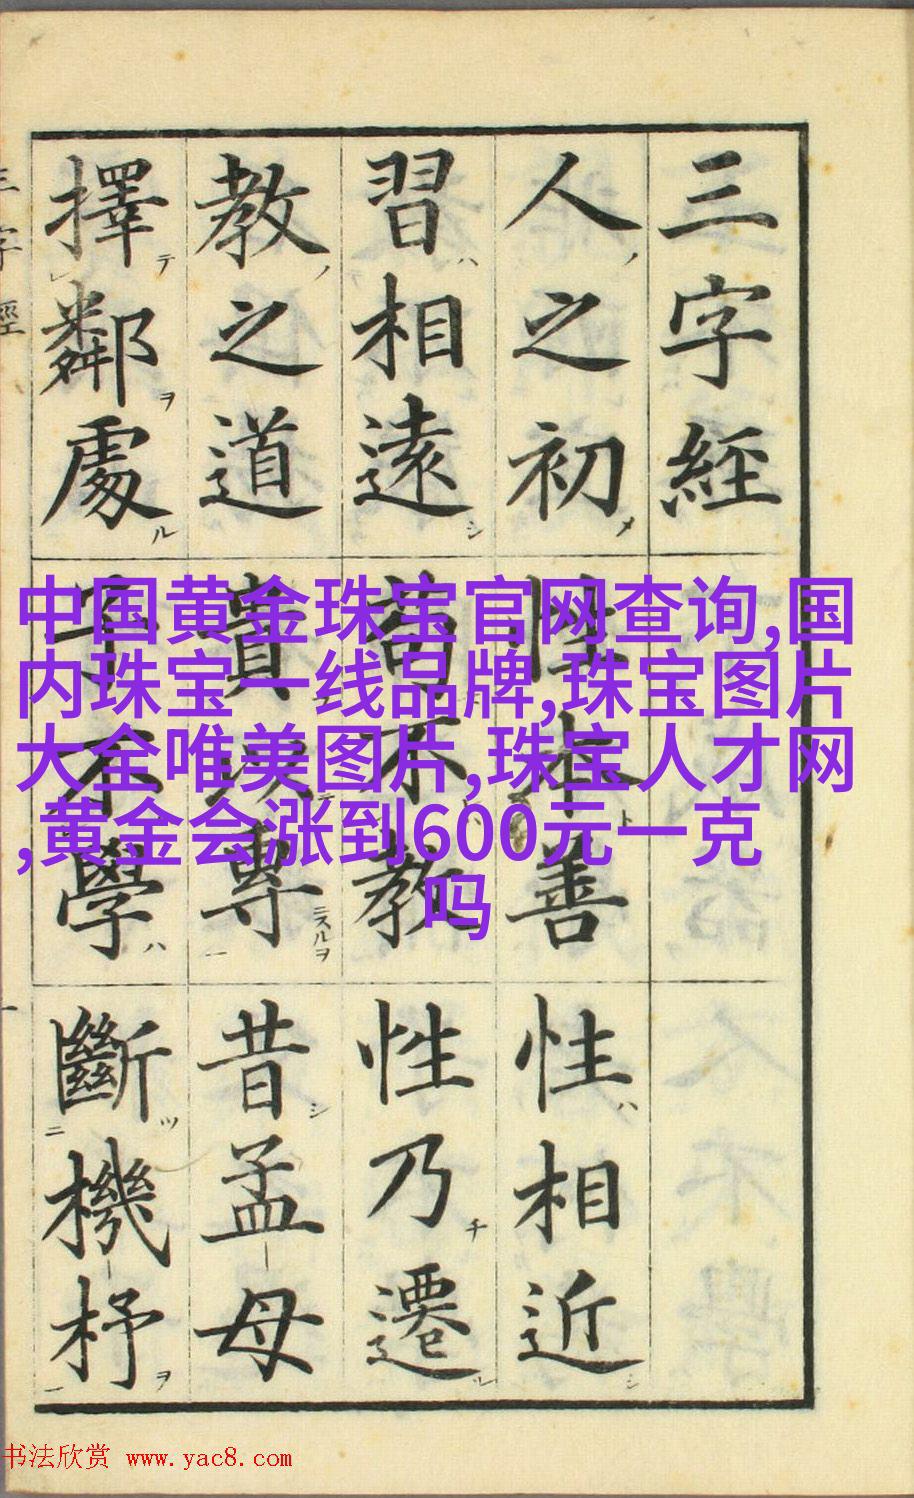 三字經
人之初 性本善 性相近
習相遠 苟不教 性乃遷
教之道 貴以專 昔孟母
擇鄰處 子不學 斷機杼
三字經 一
中国黄金珠宝官网查询,国
内珠宝一线品牌,珠宝图片
大全唯美图片,珠宝人才网
,黄金会涨到600元一克
吗
书法欣赏 www.yac8.com